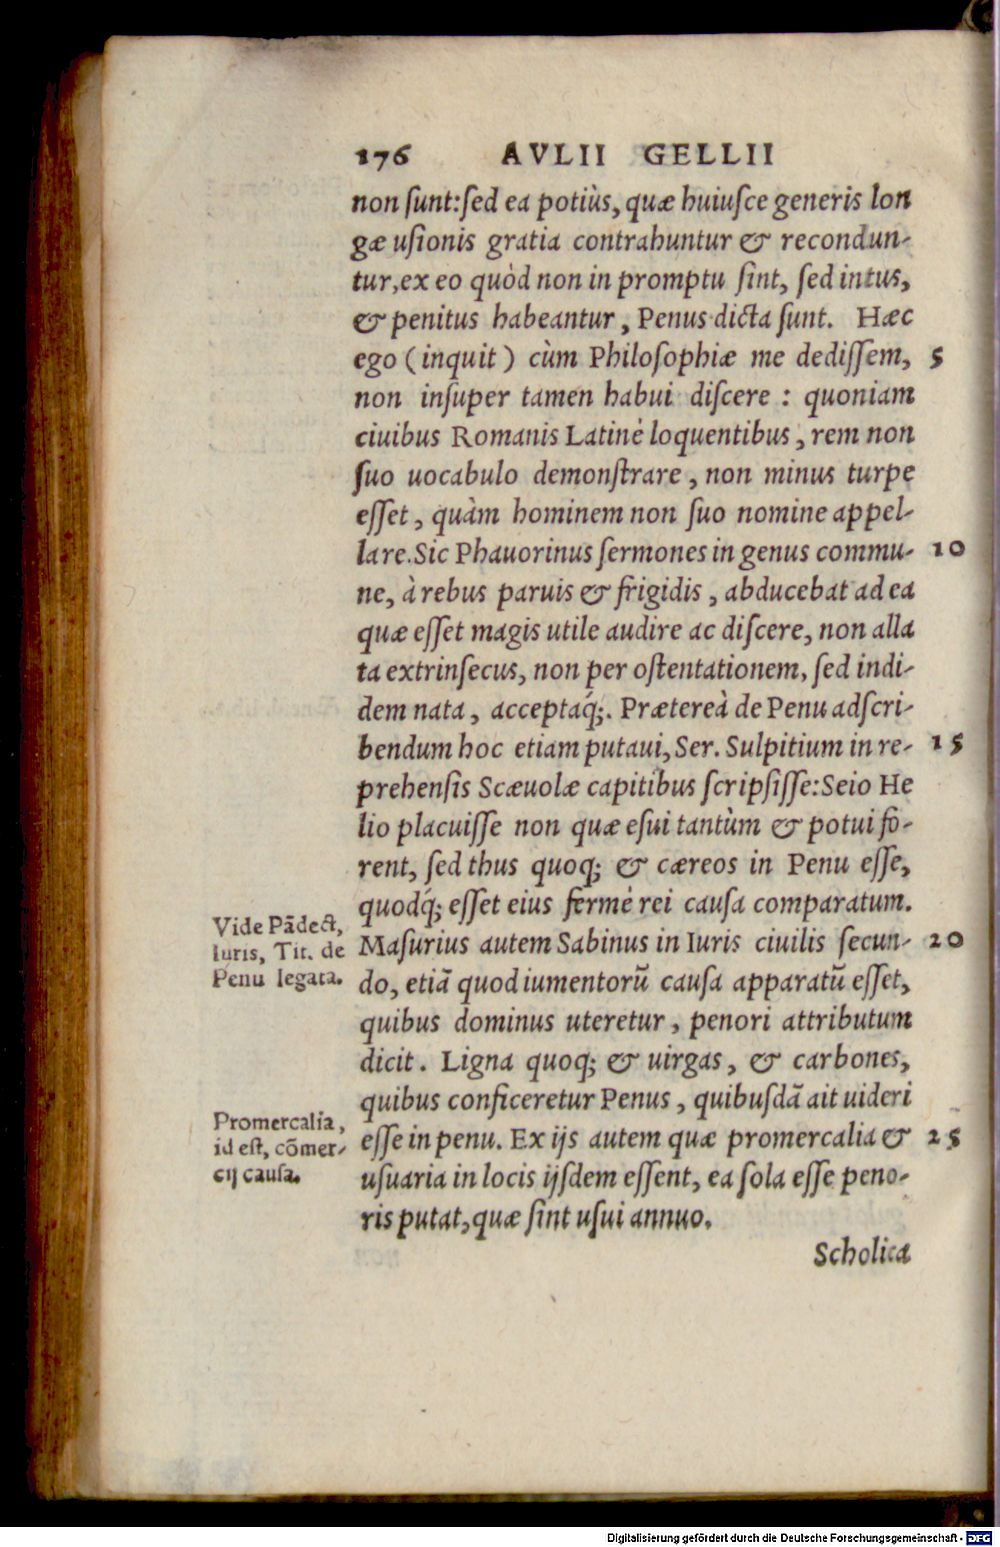 176 AVLII GELLII
non ſunt:ſed ea potiùs, quæ huiuſce generis lon
gæ uſionis gratia contrahuntur & recondun-
tur,ex eo quòd non in promptu ſint, ſed intus,
& penitus habeantur, Penus dicta ſunt. Hæc
ego (inquit) cùm Philoſophiæ me dediſſem, 5
non inſuper tamen habui diſcere : quoniam
ciuibus Romanis Latinè loquentibus, rem non
ſuo uocabulo demonſtrare, non minus turpe
eſſet, quàm hominem non ſuo nomine appel-
lare.Sic Phauorinus ſermones in genus commu- 10
ne, à rebus paruis & frigidis, abducebat ad ea
quæ eſſet magis utile audire ac diſcere, non alla
ta extrinſecus, non per oſtentationem, ſed indi-
dem nata, acceptaq́;. Prætereà de Penu adſcri-
bendum hoc etiam putaui, Ser. Sulpitium in re- 15
prehenſis Scæuolæ capitibus ſcripſiſſe:Seio He
lio placuiſſe non quæ eſui tantùm & potui fo-
rent, ſed thus quoq; & cæreos in Penu eſſe,
quodq́; eſſet eius fermè rei cauſa comparatum.
Maſurius autem Sabinus in Iuris ciuilis ſecun- 20
do, etiā quod iumentorū cauſa apparatū eſſet,
quibus dominus uteretur, penori attributum
dicit. Ligna quoq; & uirgas, & carbones,
quibus conficeretur Penus, quibuſdā ait uideri
eſſe in penu. Ex ijs autem quæ promercalia & 25
uſuaria in locis ijſdem eſſent, ea ſola eſſe peno-
ris putat, quæ ſint uſui annuo.
Scholica
Vide Pādect,
Iuris, Tit. de
Penu legata.
Promercalia,
id eſt, cōmer-
cij cauſa.
Digitalisierung gefördert durch die Deutsche Forschungsgemeinschaft - DFG